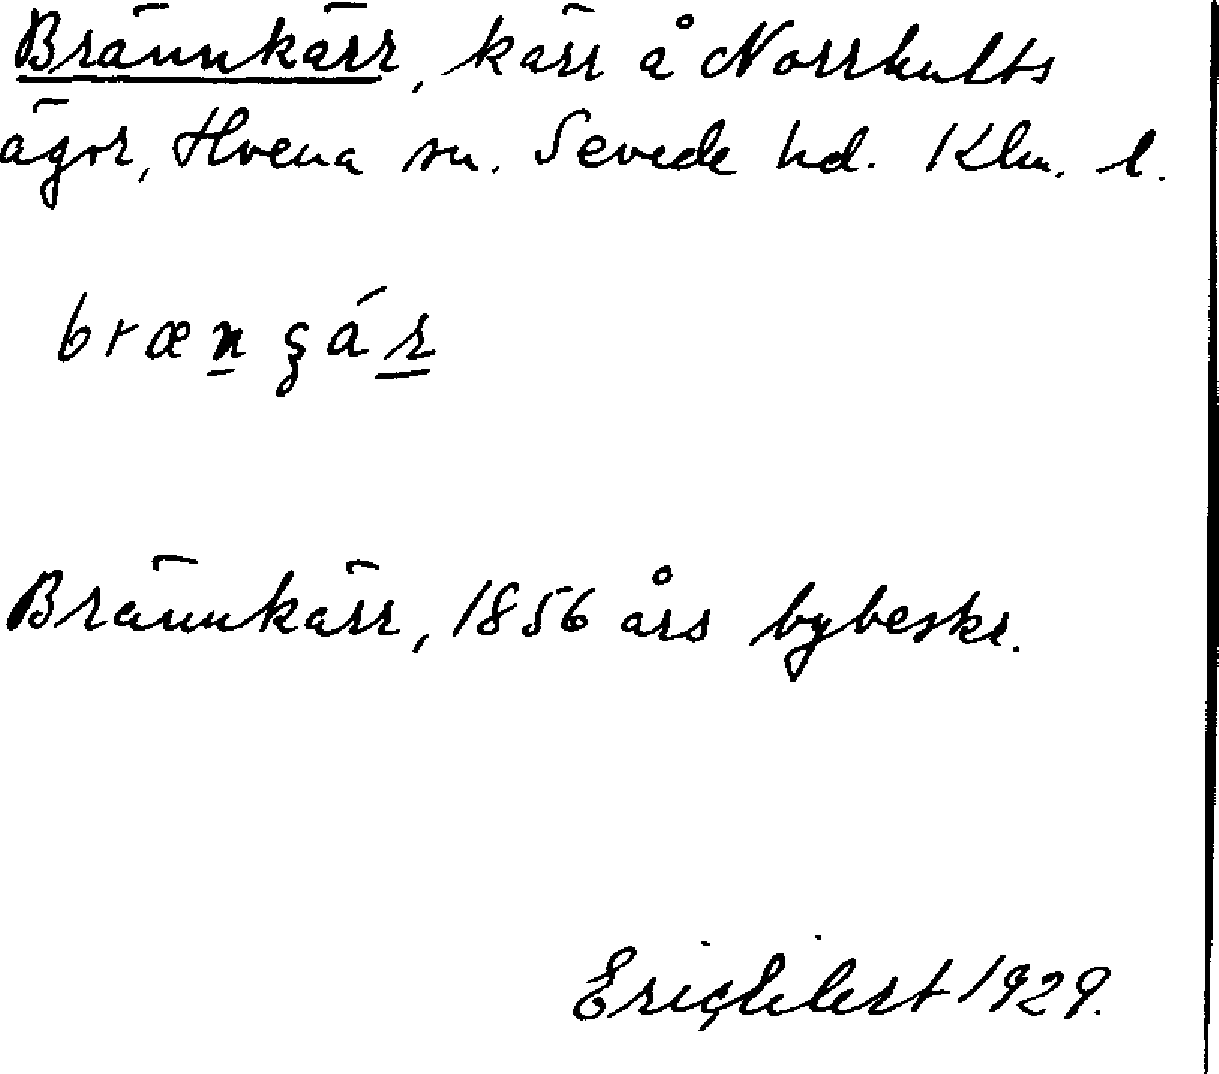 Brännkärr, kärr å Norrhults
ägor, Hvena sn. Sevede hd. Klm. l.
Brännkärr, 1856 års bybeskr.
1929.